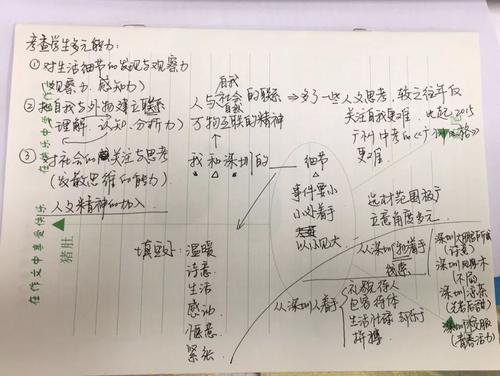 考查学生多元能力:
① 对生活细节的发现与观察力
(观察力、感知力)
② 把自我与外物建立联系
理解、认知、分析力)
③ 对社会的关注与思考
(发散思维的能力)
人文精神的加入
自我
人与社会的联系
自然
万物互联的精神
⇒ 多了一些人文思考,较之往年仅
关注自我更难。比起2015
广州中考的
更难
我和深圳的——细节
事件要小
小处着手
以小见大
选材范围放广
立意角度多元
填空处: 温暖
诗意
生活
感动
惬意
紧张
从深圳物着手
线索
从深圳人着手
礼貌待人
包容得体
生活忙碌却乐于
拼搏
深圳大鹏所城
(诗意)
不同
深圳凉茶
深圳校服
(青春活力)
在作文中享受快乐
在快乐中享受
猪肚